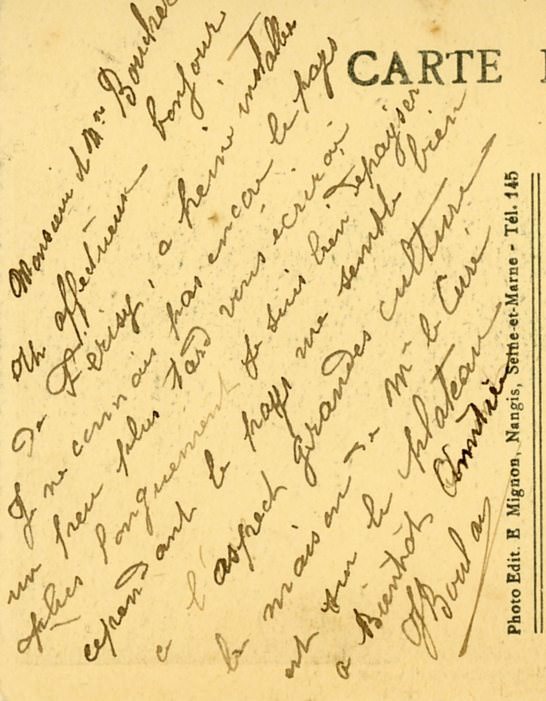 CARTE
Monsieur et Mme Boucher
Un affectueux bonjour
de Lérisy, a peine installer
Je ne connais pas encore le pays
un peu plus tard vous écrirai
plus longuement Je suis bien depayser
cependant le pays me semble bien
a l'aspect grandes culture
la maison de Mr le Curé
est sur le plateau
a Bientôt
J Boulay
Photo Edit. E Mignon, Nangis, Seine-et-Marne - Tél. 145